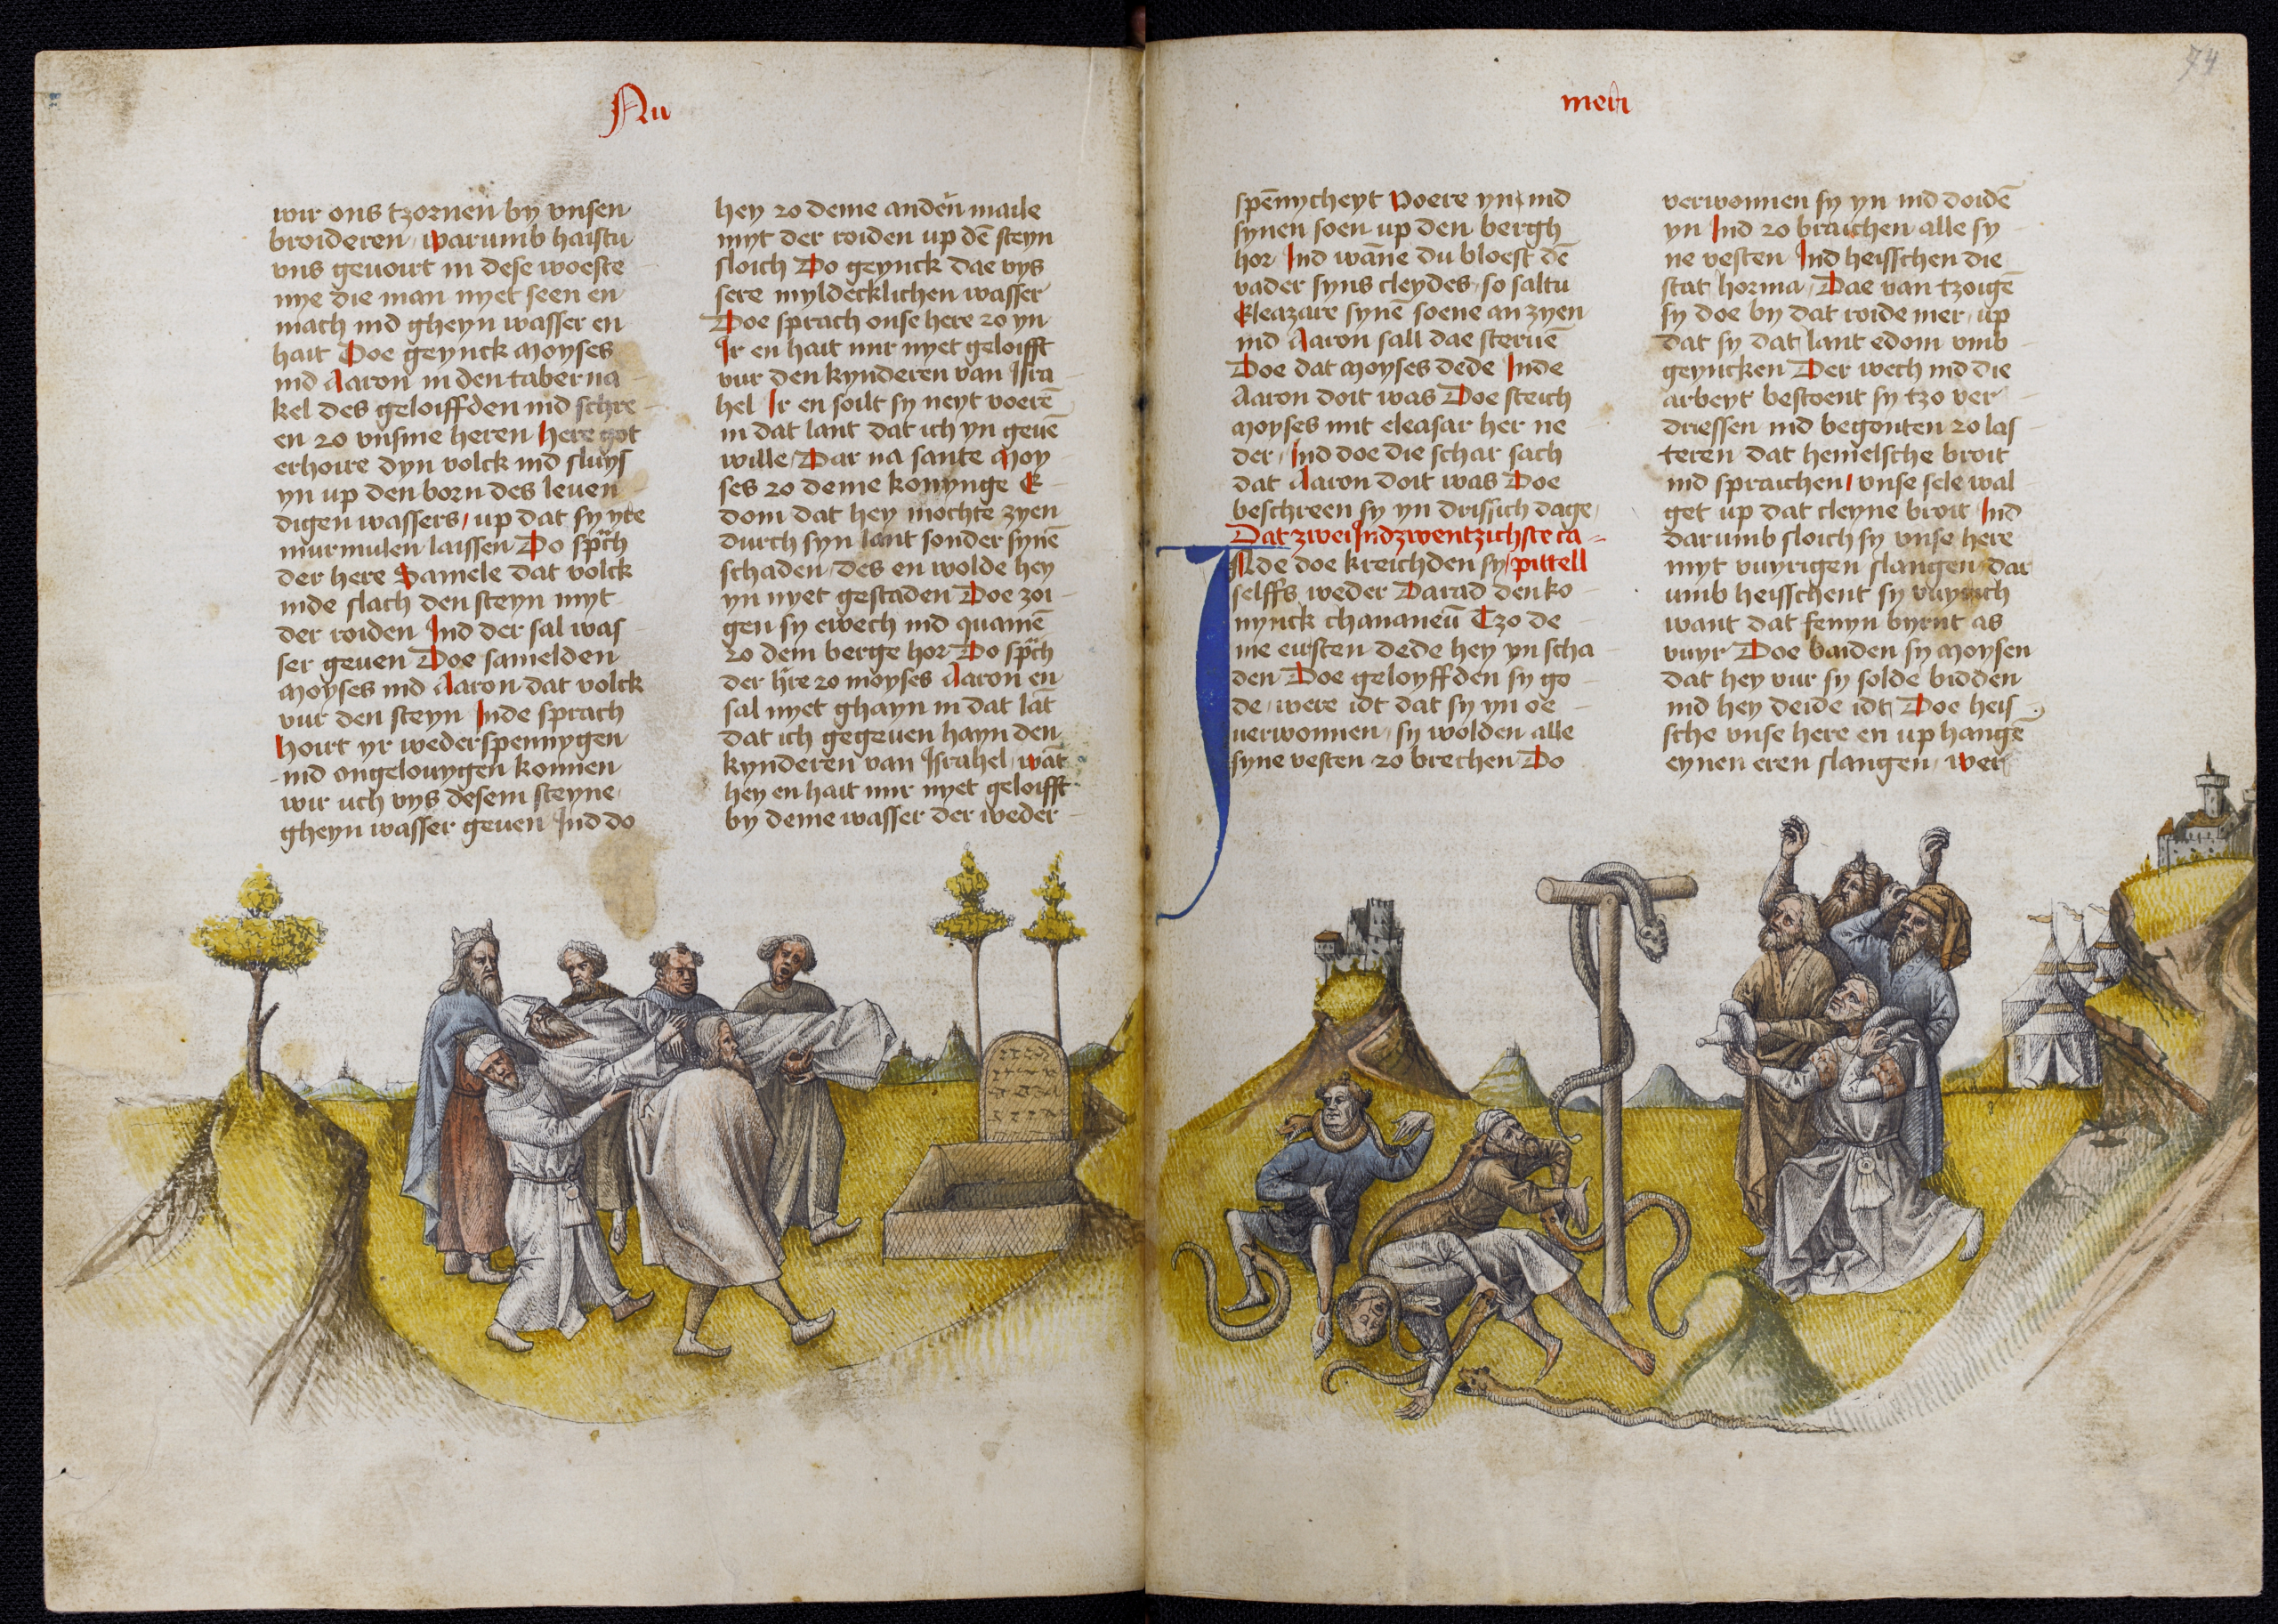 Nu
wir ons tzornen by vnsen
broideren, warumb haistu
vns geuoirt in dese woeste
nye die man nyet seen en
mach ind gheyn wasser en
hait Doe geynck moyses
ind Aaron in den taberna
kel des geloiffden ind schre
en zo vnsme heren here got
erhoire dyn volck ind sluys
yn up den born des leuen
digen wassers, up dat sy yre
murmulen laissen Do spͣch
der here Samele dat volck
inde slach den steyn myt
der roiden Ind der sal was
ser geuen Doe samelden
moyses ind Aaron dat volck
vur den steyn Inde sprach
hoirt yr wederspennygen
ind ongelouuygen konnen
wir uch vys desem steyne
gheyn wasser geuen Ind do
hey zo deme anderẽ maile
myt der roiden up dẽ steyn
sloich Do geynck dae vys
sere myldecklichen wasser
Doe sprach onse here zo yn
Ir en hait mir nyet geloifft
vur den kynderen van Isra
hel Ir en soilt sy neyt voerẽ
in dat lant dat ich yn geuẽ
wille, Dar na sante moy
ses zo deme konynge E
dom dat hey mochte zyen
durch syn lant sonder synẽ
schaden, des en wolde hey
yn nyet gestaden Doe zoi
gen sy ewech ind quamẽ
zo dem berge hor Do spͣch
der hr̃e zo moyses Aaron en
sal nyet ghayn in dat lãt
dat ich gegeuen hayn den
kynderen van Israhel, wãt
hey en hait mir nyet geloifft
by deme wasser der weder
meri
74
spẽnycheyt Voere yn, ind
synen soen up den bergh
hor Ind wãne du bloest dẽ
vader syns cleydes, so saltu
Eleazare synẽ soene an zyen
ind Aaron sall dae steruẽ
Doe dat moyses dede Inde
Aaron doit was Doe steich
moyses mit eleasar her ne
der, Ind doe die schar sach
dat Aaron doit was Doe
beschreen sy yn drissich dage,
Dat zwei Ind zwentzichste ca
pittell
INde doe kreichden sy
selffs weder Darad den ko
nynck chananeũ Tzo de
me eirsten dede hey yn scha
den Doe geloyffden sy go
de, were idt dat sy yn oe
uerwonnen, sy wolden alle
syne vesten zo brechen Do
verwonnen sy yn ind doidẽ
yn Ind zo braichen alle sy
ne vesten Ind heisschen die
stat horma, Dae van tzoigẽ
sy doe by dat roide mer, up
dat sy dat lant edom vmb
geyncken Der wech ind die
arbeyt bestoent sy tzo ver
driessen ind begonten zo las
teren dat hemelsche broit
ind spraichen, vnse sele wal
get up dat cleyne broit Ind
darumb sloich sy vnse here
myt vuyrigen slangen, dar
umb heisschent sy vuyrich
want dat fenyn byrnt as
vuyr Doe baiden sy moysen
dat hey vur sy solde bidden
ind hey deide idt, Doe heis
sche vnse here en up hangẽ
eynen eren slangen, wer